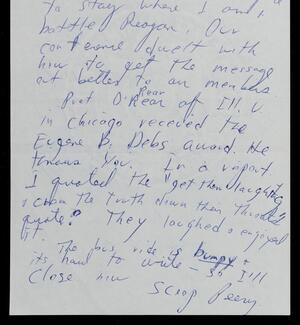 To stay where I am &
battle Reagan. Our
conference dwelt with
how to get the message
out better to our members
Rear
Prof. O'Rear of Ill. U.
in Chicago received the
Eugene B. Debs award. He
thanks You. In a report
I quoted the "get them laughing
& cram the truth down their throats
quote" They laughed & enjoyed
it.
The bus ride is bumpy &
its hard to write - So I'll
close now
Scoop Peery